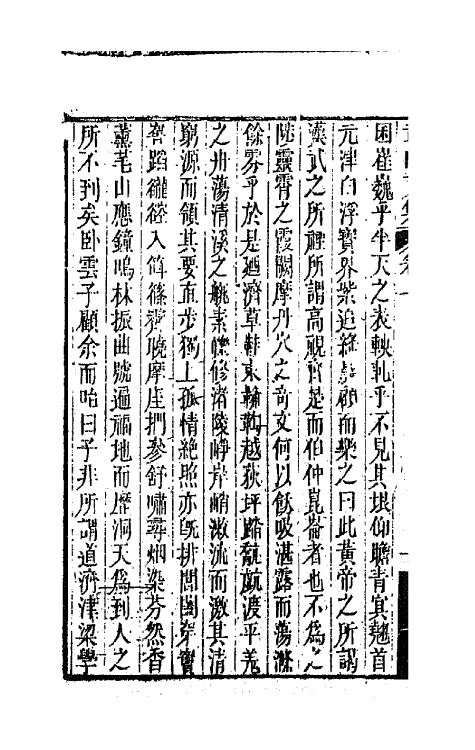 困崔巍乎半天之表軮軋乎不見其垠仰瞻青其翹首
元津白浮寶界紫追絳顧而樂之曰此黃帝之所謁
漢武之所禋所謂高覜齊楚而伯仲崑崙者也不爲之
陟靈霄之霞闕摩丹穴之奇文何以飲吸湛露而蕩滌
餘雰乎於是廼濟草鞋束輪鞫越荻坪踏巔渡平羌
之舟蕩清溪之艫素皪修渚陵崢岸峭漱流而激其清
窮源而領其要直步獨上孤情絶照亦旣排閶闔穿寶
磬蹈入篠曉摩崖捫參舒嘯尋烟染芬然香
薰芼山應鐘鳴林振曲號遍福地而歷洞天爲到人之
所不到矣卧雲子顧余而咍曰子非所謂道濟津梁學